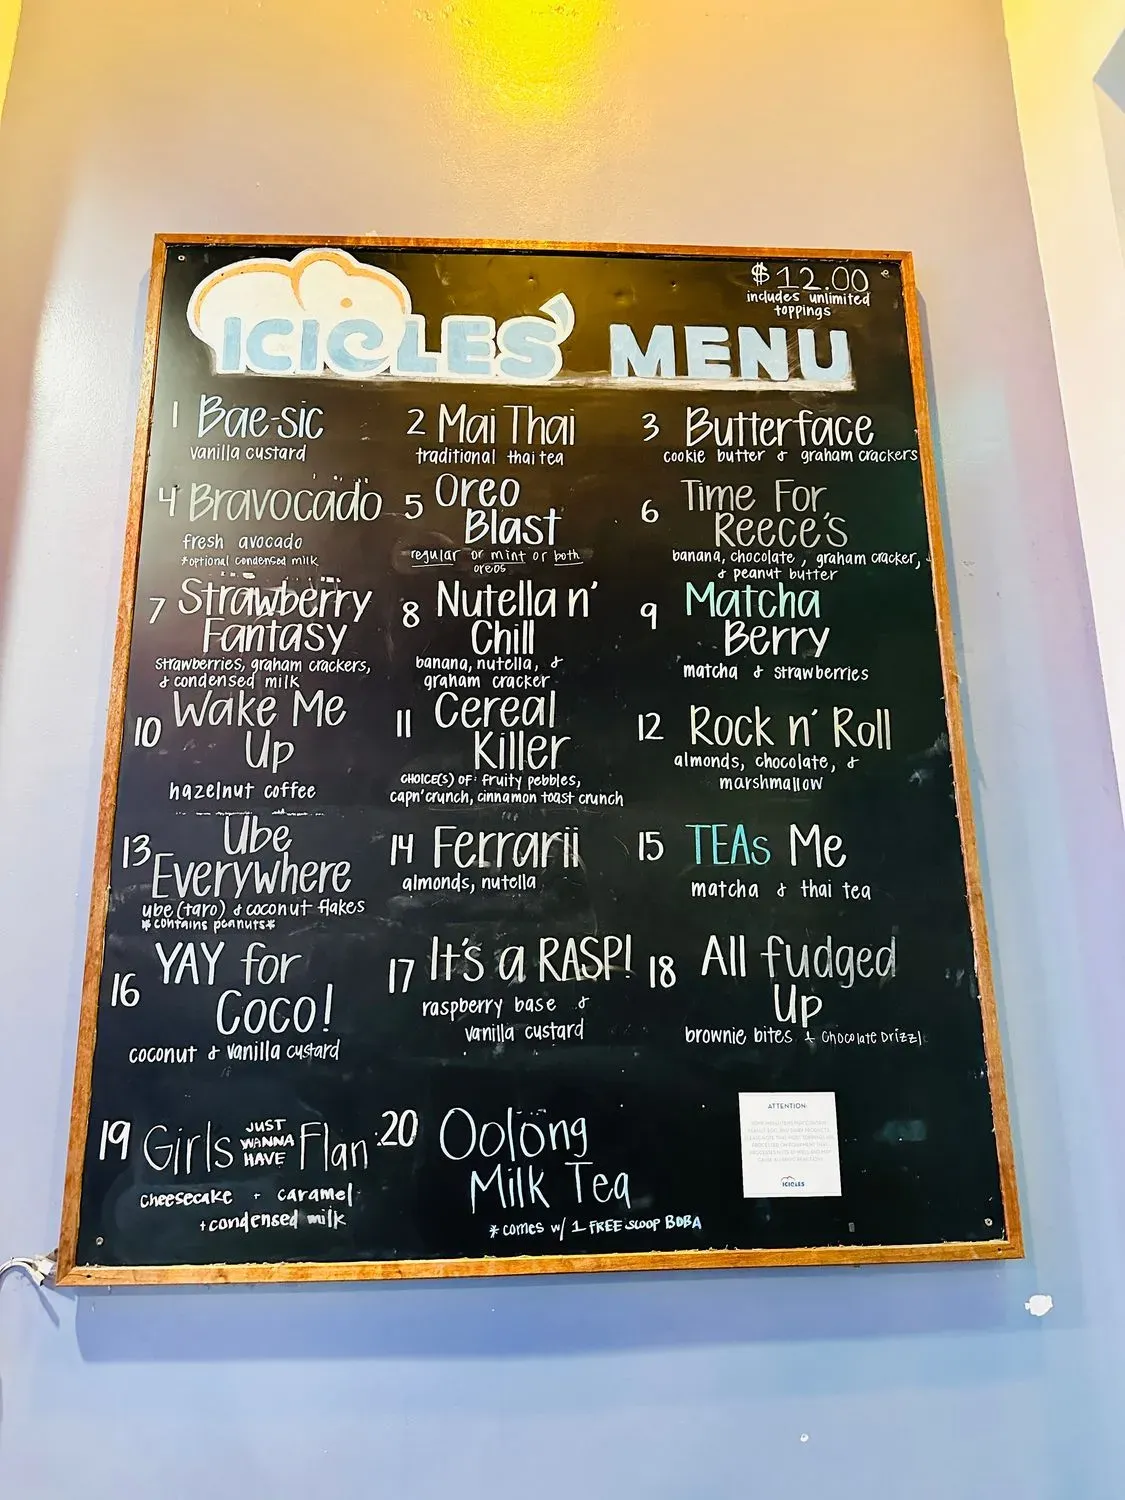 $12.00
includes unlimited
toppings
ICICLES' MENU
1 Bae-sic
vanilla custard
2 Mai Thai
traditional thai tea
3 Butterface
cookie butter & graham crackers
4 Bravocado
fresh avocado
*optional condensed milk
5 Oreo
Blast
regular or mint or both
oreos
6 Time For
Reece's
banana, chocolate, graham cracker,
& peanut butter
7 Strawberry
Fantasy
strawberries, graham crackers,
& condensed milk
8 Nutella n'
Chill
banana, nutella, &
graham cracker
9 Matcha
Berry
matcha & strawberries
10 Wake Me
Up
hazelnut coffee
11 Cereal
Killer
CHOICE(S) OF: fruity pebbles,
capn'crunch, cinnamon toast crunch
12 Rock n' Roll
almonds, chocolate, &
marshmallow
13 Ube
Everywhere
ube (taro) & coconut flakes
*contains peanuts*
14 Ferrarii
almonds, nutella
15 TEAs Me
matcha & thai tea
16 YAY for
Coco!
coconut & vanilla custard
17 It's a RASP!
raspberry base &
vanilla custard
18 All fudged
Up
brownie bites + chocolate Drizzl
19 Girls JUST WANNA HAVE Flan
cheesecake + caramel
+ condensed milk
20 Oolong
Milk Tea
*comes w/ 1 FREE SCOOP BOBA
ATTENTION:
ICICLES